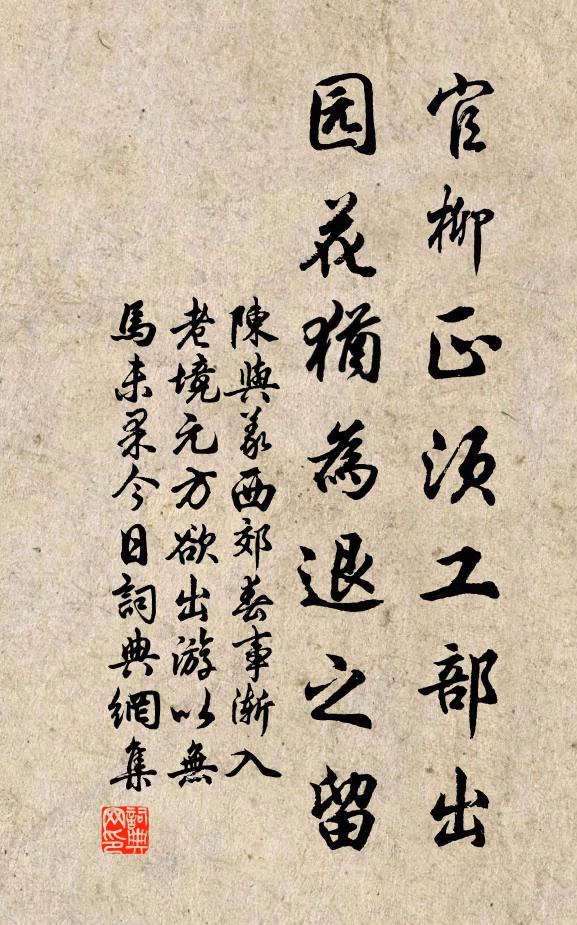 官柳正须工部出
园花猶為退之留
陳與義西郊春事漸入
老境元方欲出游以無
馬未果今日詞典網集
詞典網印